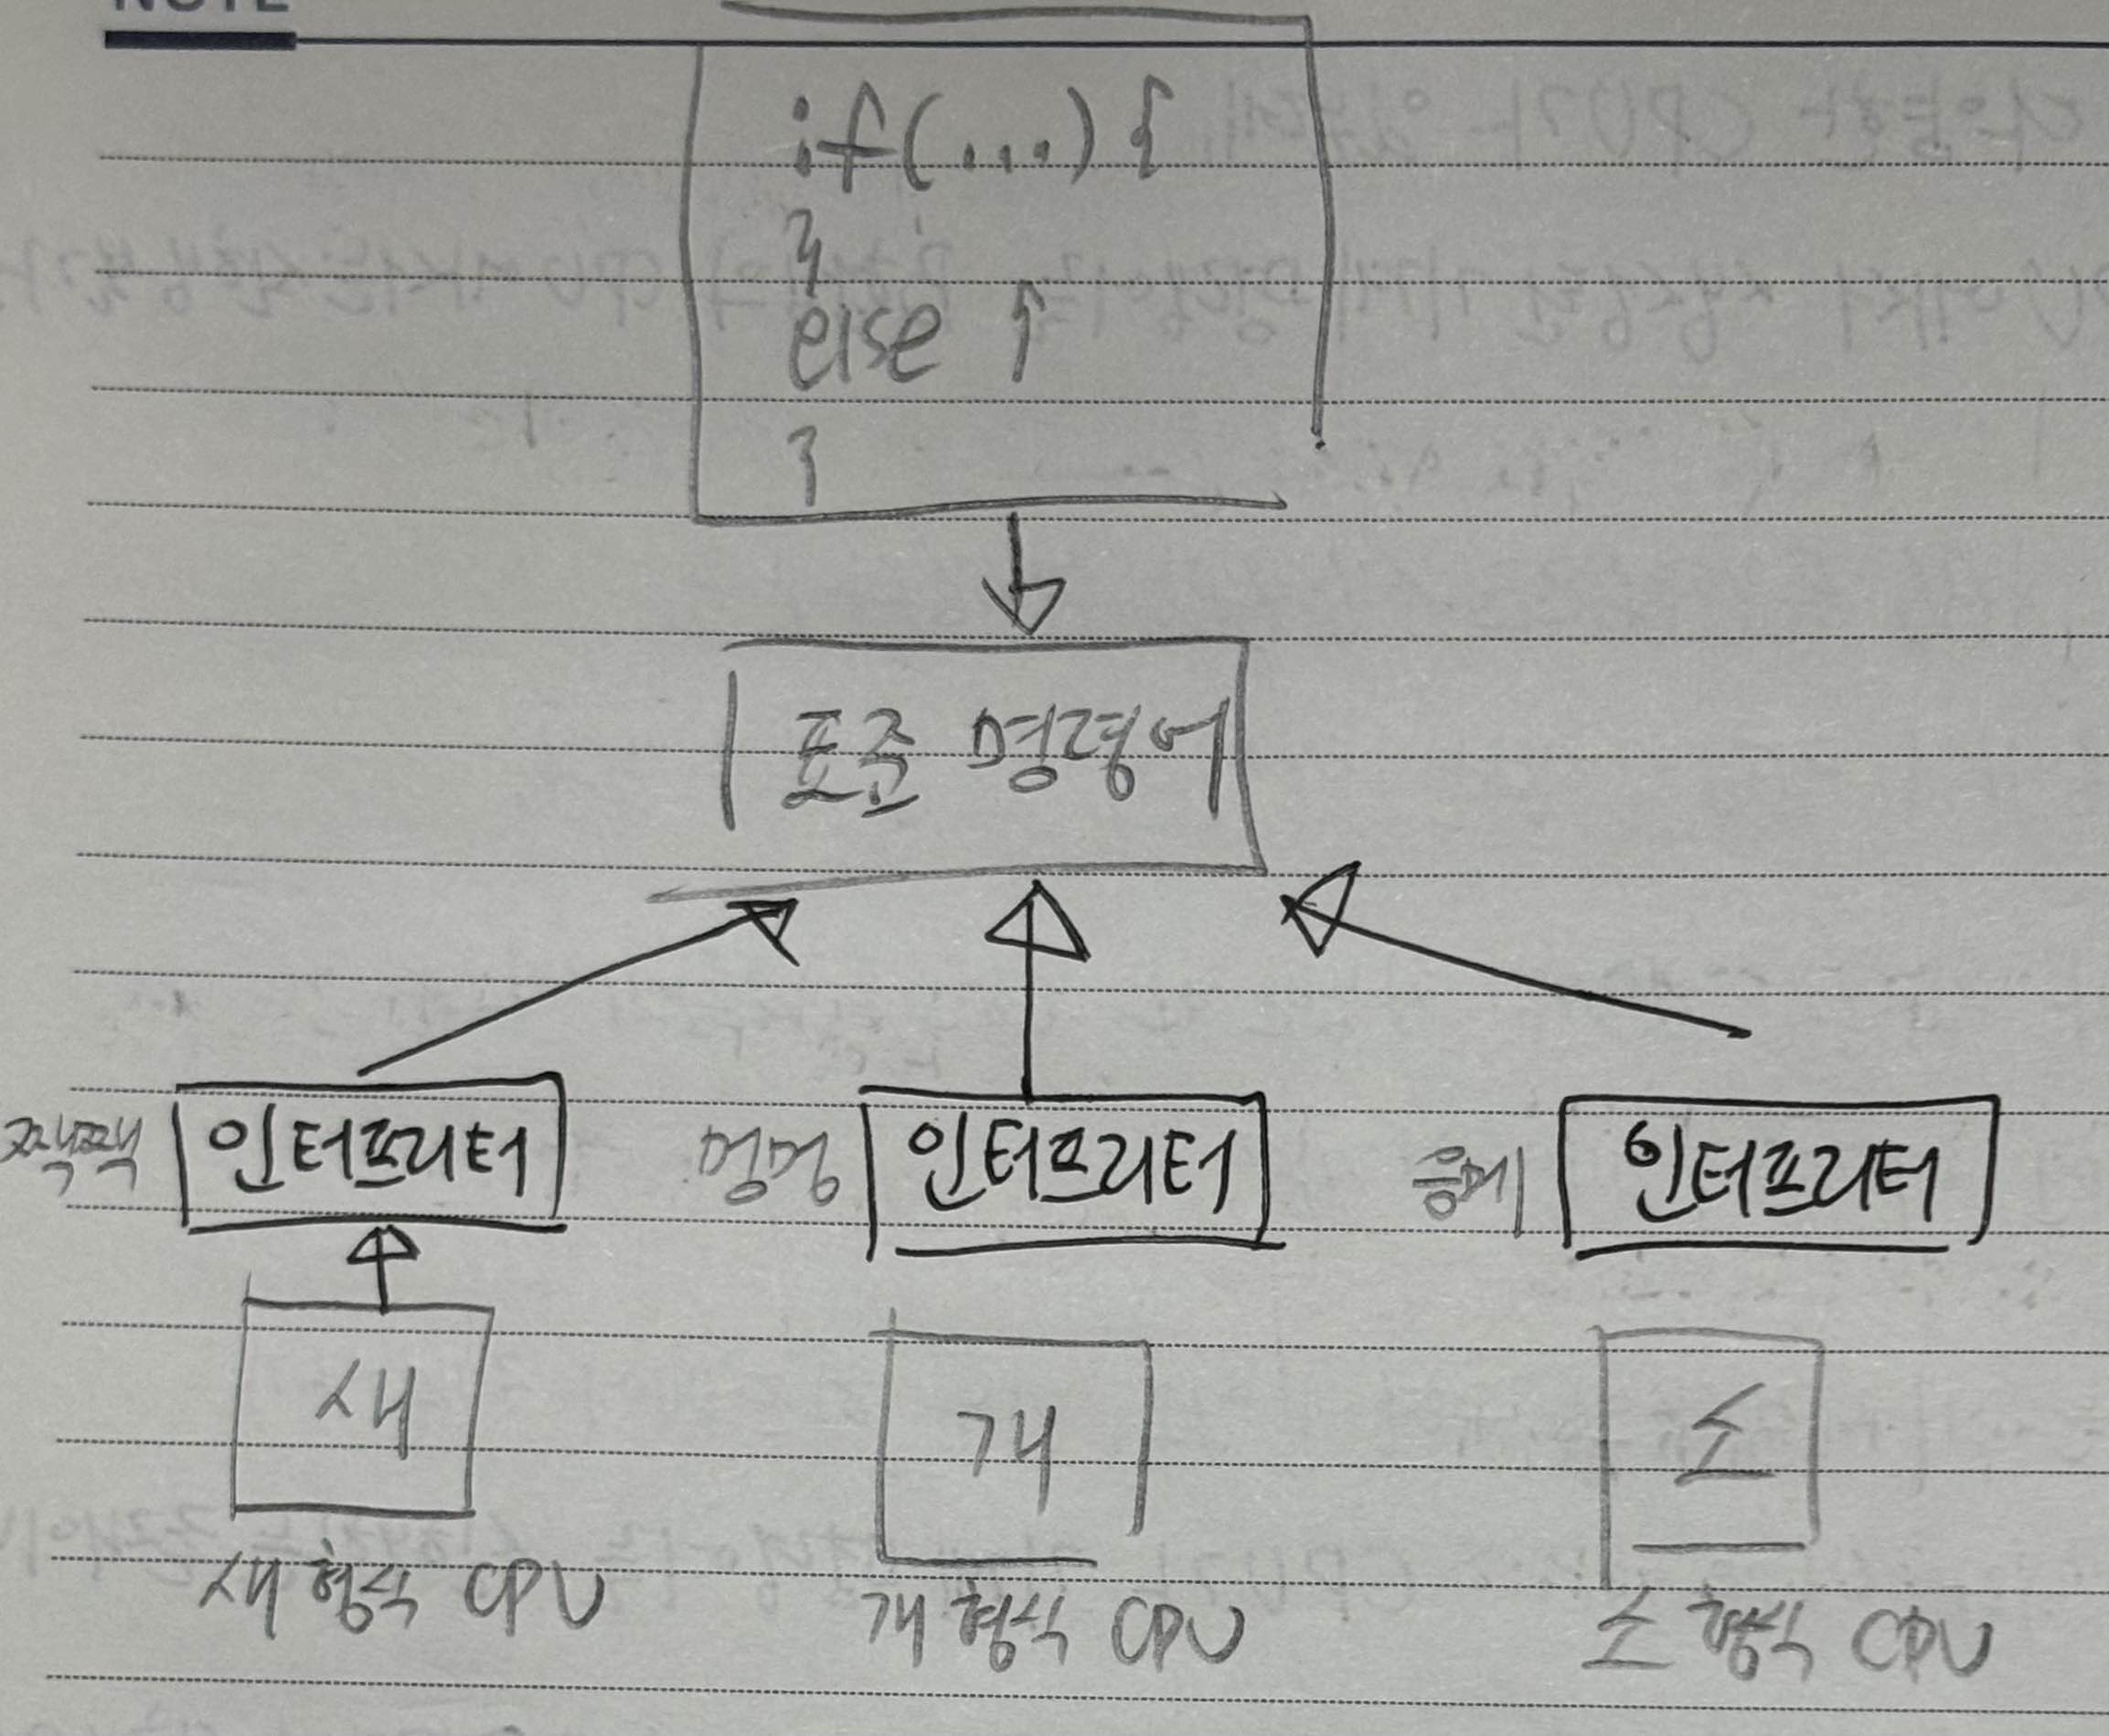 NOTE
if(...) {
}
else {
}
표준 명령어
짹짹 인터프리터 멍멍 인터프리터 음메 인터프리터
새 개 소
새 형식 CPU 개 형식 CPU 소 형식 CPU